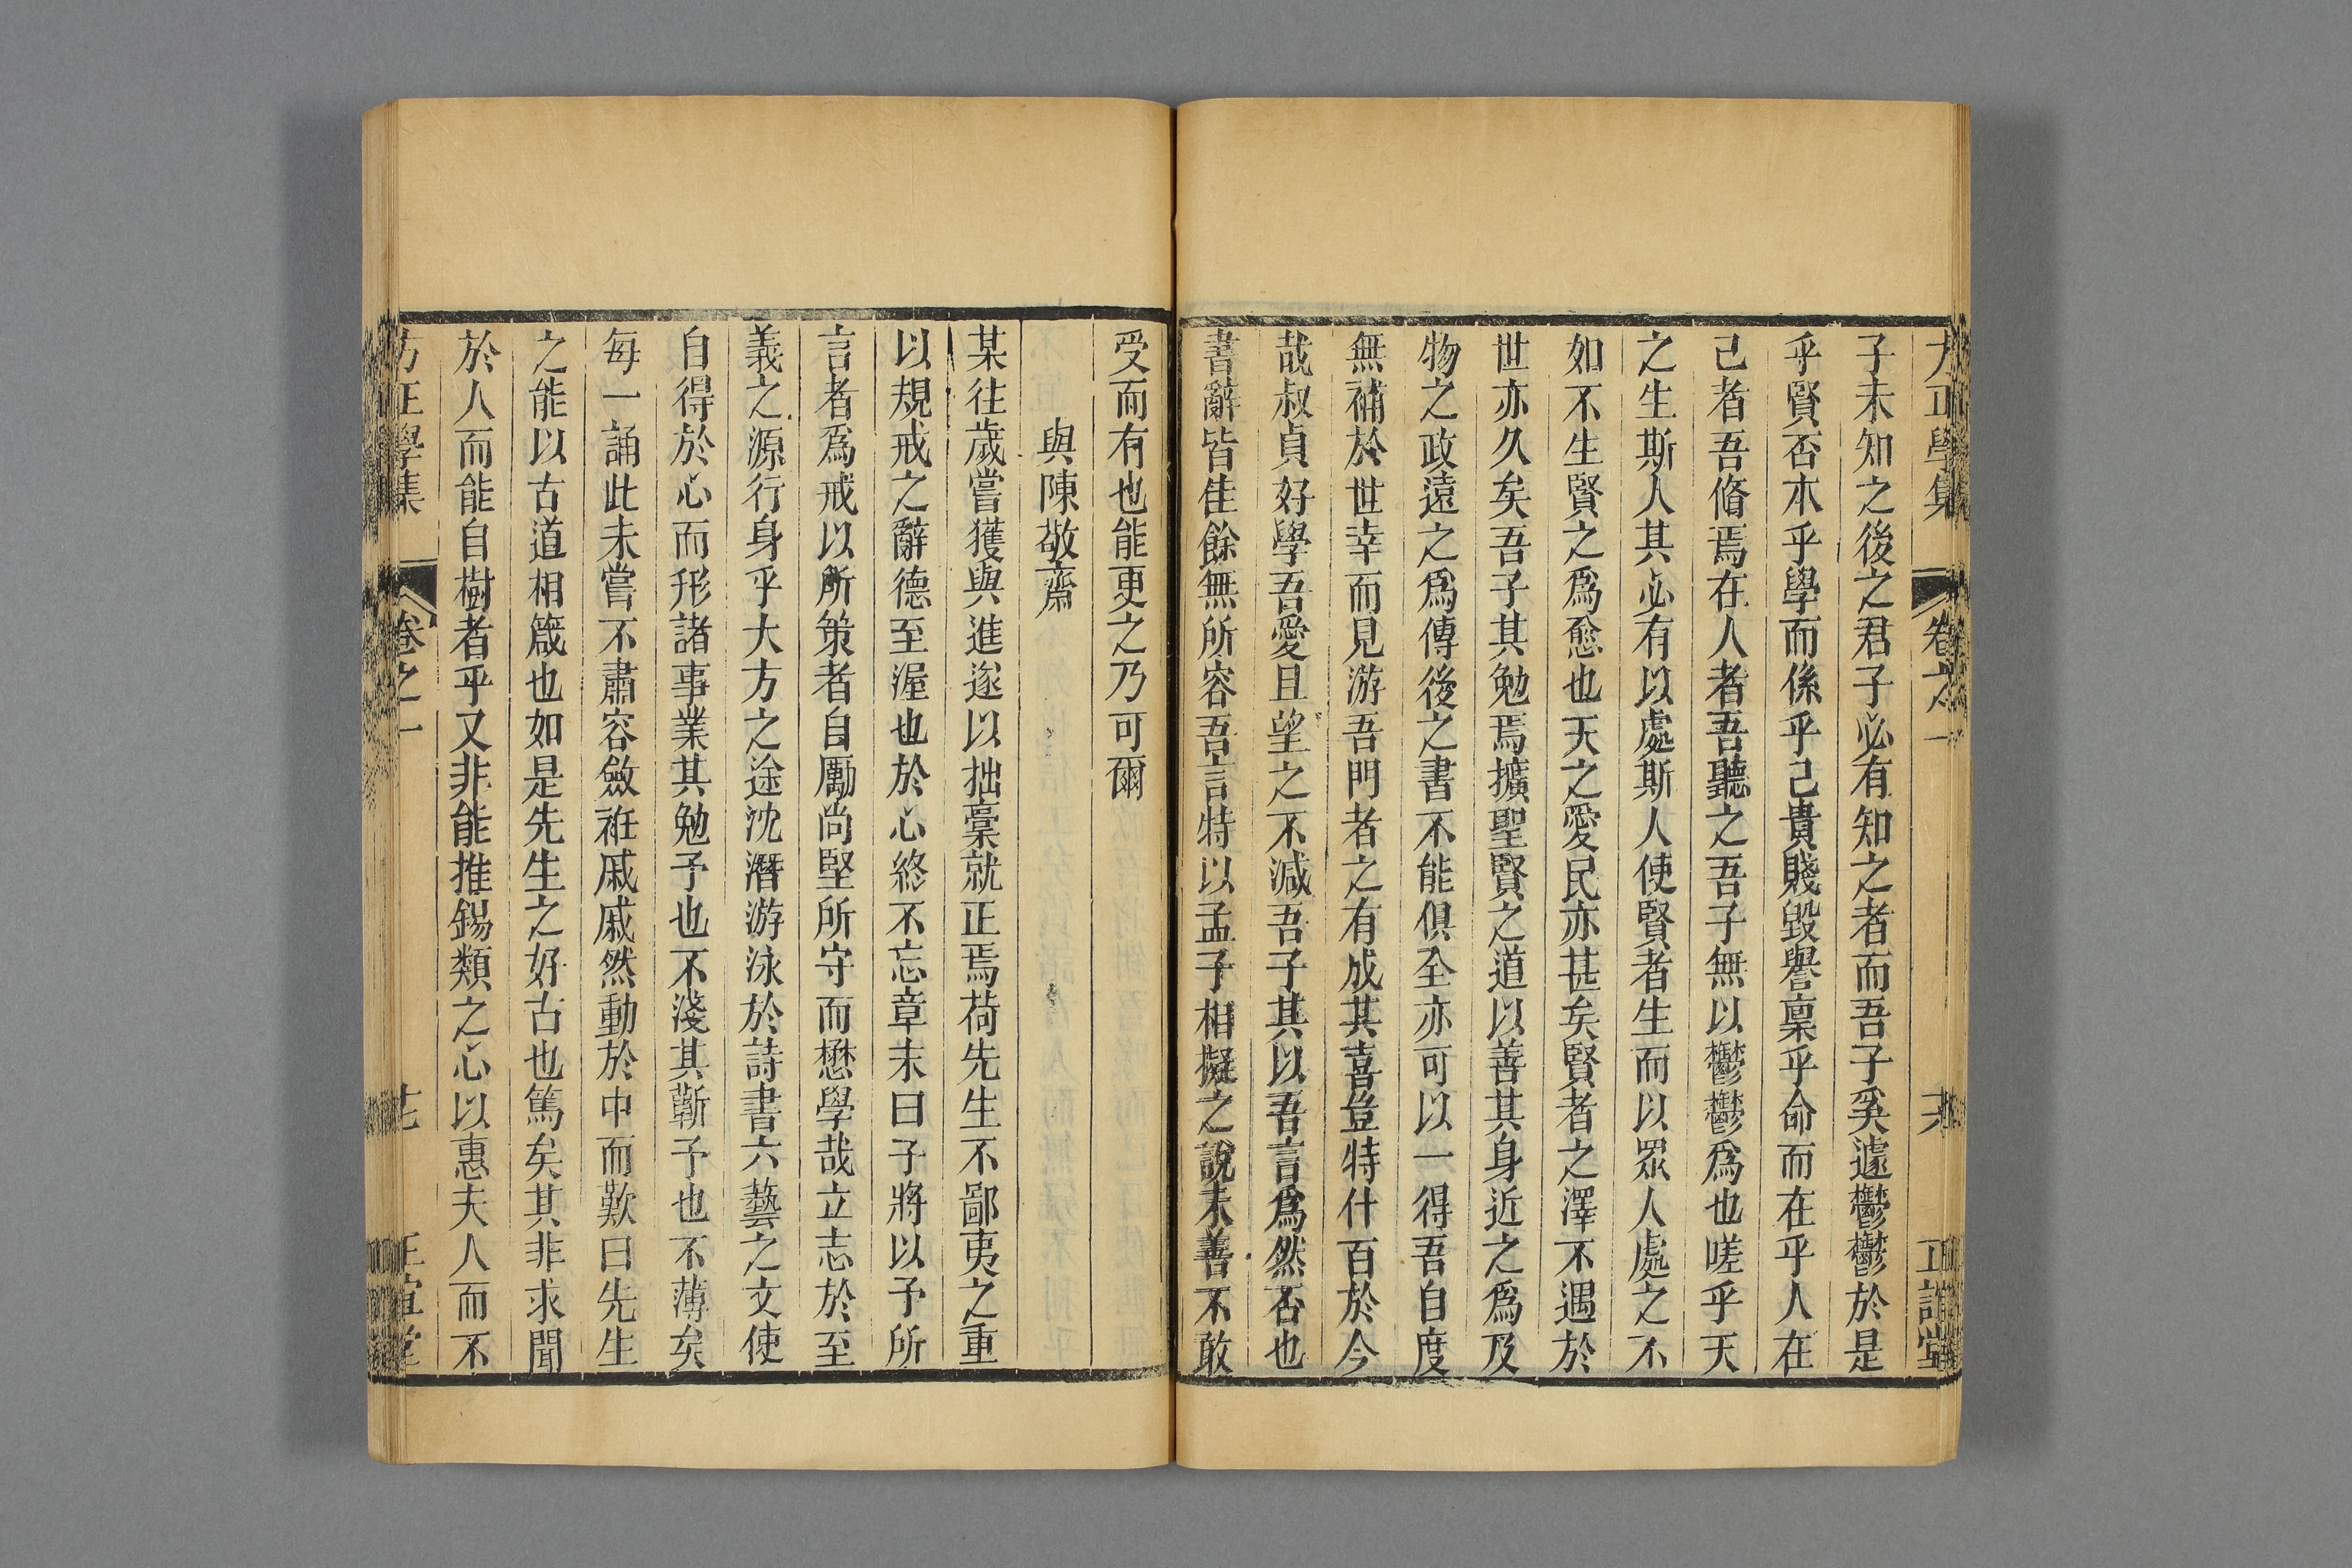 方正學集 卷之一 十六 正誼堂
子未知之後之君子必有知之者而吾子奚遽鬱鬱於是
乎賢否本乎學而係乎己貴賤毀譽稟乎命而在乎人在
己者吾脩焉在人者吾聽之吾子無以鬱鬱爲也嗟乎天
之生斯人其必有以處斯人使賢者生而以眾人處之不
如不生賢之爲愈也天之愛民亦甚矣賢者之澤不遇於
世亦久矣吾子其勉焉擴聖賢之道以善其身近之爲及
物之政遠之爲傳後之書不能俱全亦可以一得吾自度
無補於世幸而見游吾門者之有成其喜豈特什百於今
哉叔貞好學吾愛且望之不減吾子其以吾言爲然否也
書辭皆佳餘無所容吾言特以孟子相擬之說未善不敢
受而有也能更之乃可爾
與陳敬齋
某往歲嘗獲與進遂以拙稾就正焉荷先生不鄙夷之重
以規戒之辭德至渥也於心終不忘章末曰子將以予所
言者爲戒以所策者自勵尚堅所守而懋學哉立志於至
義之源行身乎大方之途沈潛游泳於詩書六藝之文使
自得於心而形諸事業其勉予也不淺其蘄予也不薄矣
每一誦此未嘗不肅容斂衽戚戚然動於中而歎曰先生
之能以古道相箴也如是先生之好古也篤矣其非求聞
於人而能自樹者乎又非能推錫類之心以惠夫人而不
方正學集 卷之一 十七 正誼堂